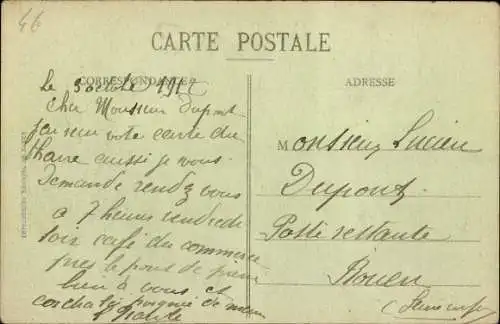 4€
CARTE POSTALE
CORRESPONDANCE
ADRESSE
Le 3 octobre
cher Monsieur Dupont
jai reçu vote carte du
Havre aussi je vous
Demande rendez vous
a 7 heures vendredi
soir café du commerce
pres le pont de pierre
bien à vous et
poignée de main
Monsieur Lucien
Dupont
Poste restante
Rouen